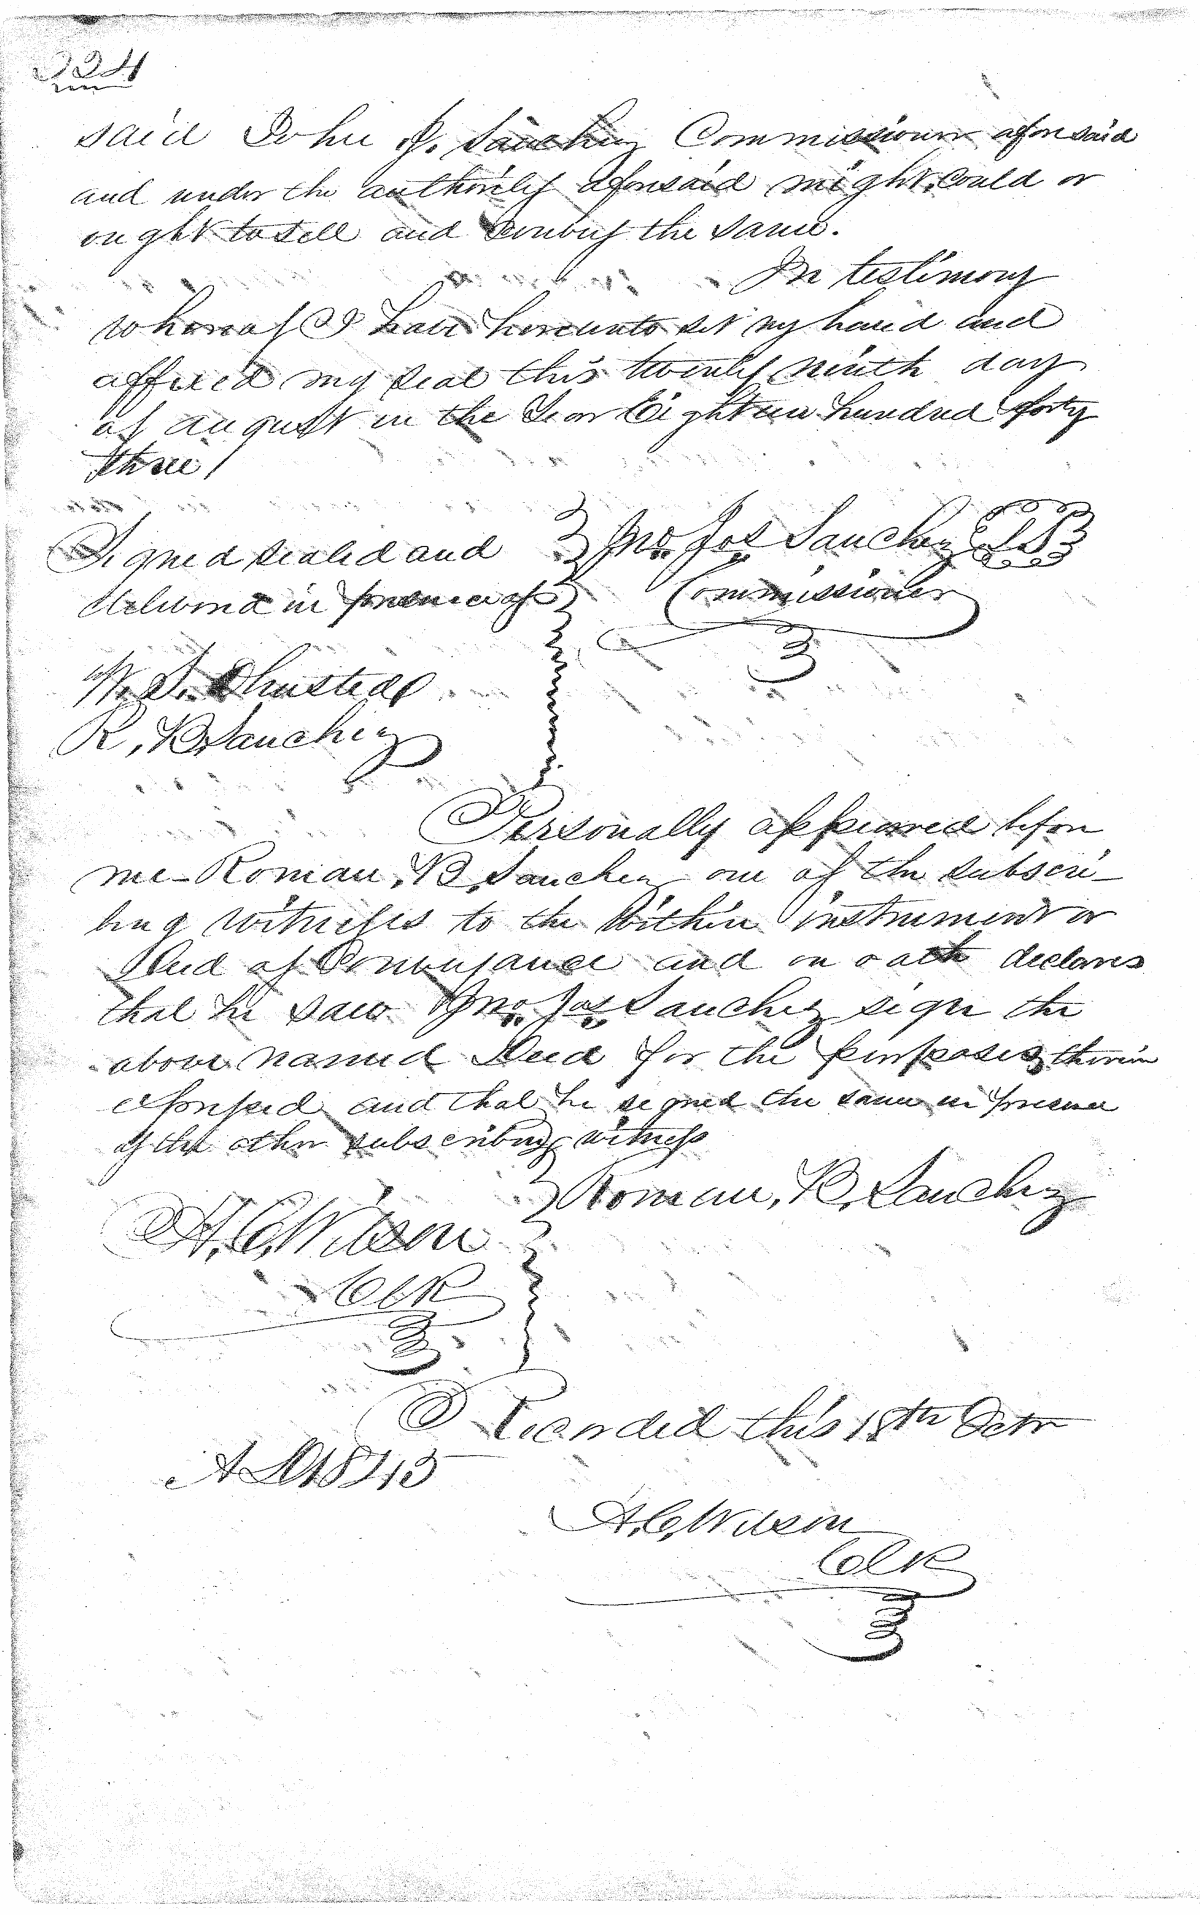 224
said John J. Sanchez Commissioner aforesaid
and under the authority aforesaid might, could or
ought to sell and convey the same.
In testimony
whereof I have hereunto set my hand and
affixed my seal this twenty ninth day
of august in the Year Eighteen hundred forty
three
Signed sealed and
delivered in presence of
Jno. Jos Sanchez LS
Commissioner
W. S. Olmstead
R, B, Sanchez
Personally appeared before
me Roman, B, Sanchez one of the subscri-
bing witnesses to the within instrument or
deed of Conveyance and on oath declares
that he saw Jno. Jos Sanchez sign the
above named Deed for the purposes therein
expressed and that he signed the same in presence
of the other subscribing witness
Roman, B, Sanchez
H. C. Wilson
Clk
Recorded this 18th Octr
AD 1843
H. C. Wilson
Clk